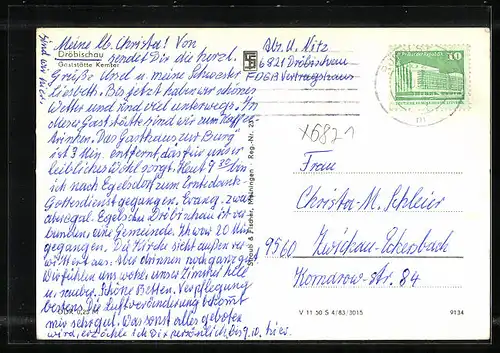 Dröbischau
Gaststätte Kemter
sind wir hier.
Meine lb. Christa! Von
sendet Dir die herzl.
Grüße Ursel u. meine Schwester
Liesbeth. Bis jetzt haben wir schönes
Wetter und sind viel unterwegs. In
dieser Gaststätte sind wir zum Kaffee-
trinken. Das Gasthaus "zur Burg"
ist 3 Min. entfernt, das für unser
leibliches Wohl sorgt. Heut 7 30 bin
ich nach Egelsdorf zum Erntedank-
Gottesdienst gegangen. Evang. zwar
aber egal. Egelsd. Dröbischau ist ver-
bunden, eine Gemeinde. 20 Min.
gegangen. Die Kirche sieht außen ver-
wittert aus. Aber drinnen noch ganz gut.
Wir fühlen uns wohl, unser Zimmer hell
u. sauber. Schöne Betten. Verpflegung
bestens. Die Luftveränderung bekommt
mir sehr gut. Was sonst alles geboten
wird, erzähle ich Dir persönlich, bis 9.10. hier.
Abs. U. Nitz
6821 Dröbischau
FDGB Vertragshaus
X6821
Palast der Republik
10
DDR
Frau
Christa-M. Schleier
9560 Zwickau-Eckersbach
Komarow-Str. 84
Straub & Fischer, Meiningen · Reg.-Nr.
V 11 50 S 4/83/3015
9134